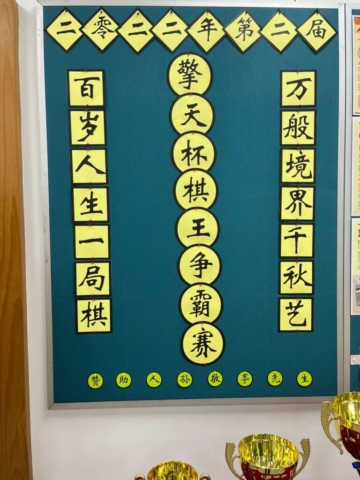 二零二二年第二届
擎天杯棋王争霸赛
百岁人生一局棋
万般境界千秋艺
赞助人孙敬享先生